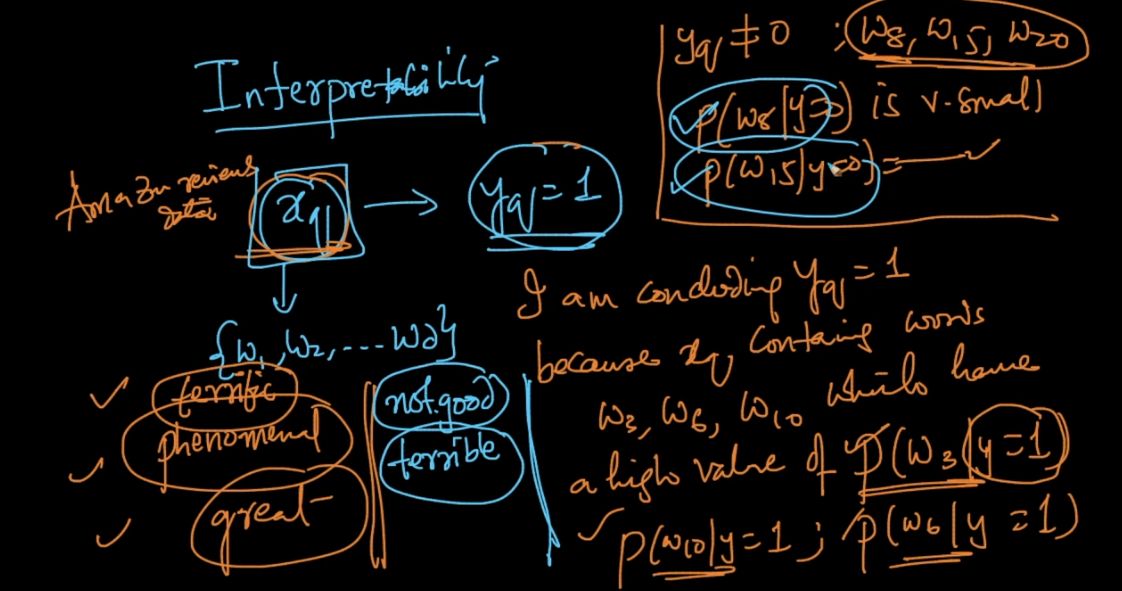 Interpretability
Amazon reviews
data
xq → yq = 1
{w1, w2, ... wd}
terrific
phenomenal
great
not good
terrible
yq ≠ 0 ; w8, w15, w20
p(w8|y=0) is v. small
p(w15|y=0) =
I am concluding yq = 1
because xq, containg words
w3, w6, w10 which have
a high value of p(w3|y=1)
p(w10|y=1 ; p(w6|y=1)